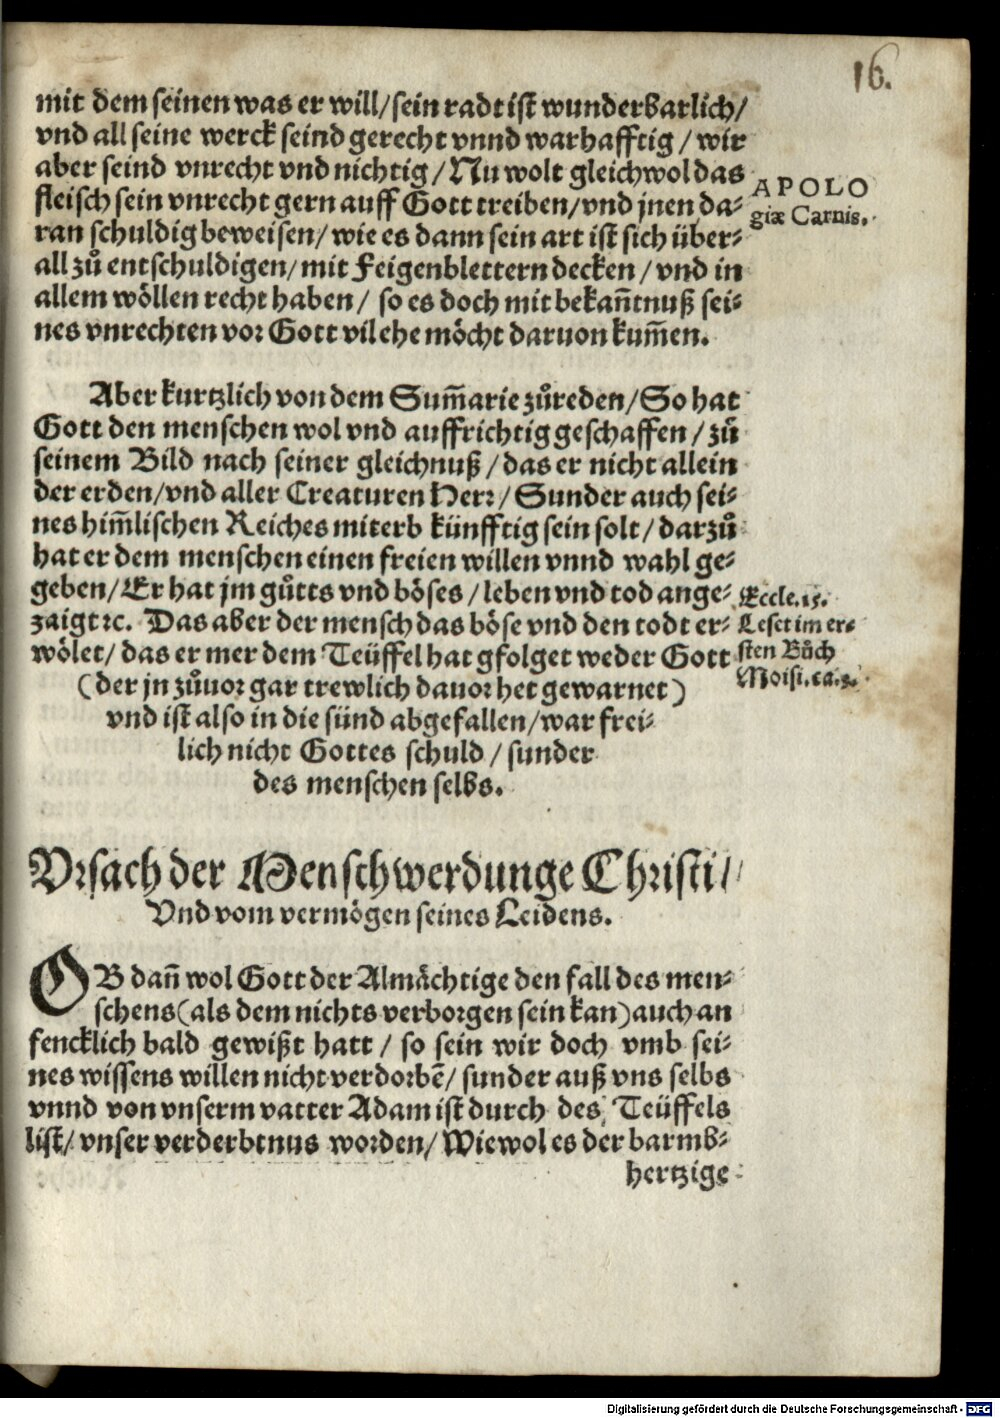 16.
mit dem seinen was er will/ sein radt ist wunderbarlich/
vnd all seine werck seind gerecht vnnd warhafftig / wir
aber seind vnrecht vnd nichtig / Nu wolt gleichwol das
fleisch sein vnrecht gern auff Gott treiben/ vnd jnen da-
ran schuldig beweisen/ wie es dann sein art ist sich über-
all zů entschuldigen/ mit Feigenblettern decken / vnd in
allem wöllen recht haben / so es doch mit bekañtnuß sei-
nes vnrechten vor Gott vil ehe möcht daruon kum̃en.
APOLO
giæ Carnis.
Aber kurtzlich von dem Sum̃arie zůreden/ So hat
Gott den menschen wol vnd auffrichtig geschaffen / zů
seinem Bild nach seiner gleichnuß / das er nicht allein
der erden/ vnd aller Creaturen Herr/ Sunder auch sei-
nes him̃lischen Reiches miterb künfftig sein solt / darzů
hat er dem menschen einen freien willen vnnd wahl ge-
geben/ Er hat jm gůtts vnd böses / leben vnd tod ange-
zaigt ꝛc. Das aber der mensch das böse vnd den todt er-
wölet/ das er mer dem Teüffel hat gfolget weder Gott
(der jn zůuor gar trewlich dauor het gewarnet)
vnd ist also in die sünd abgefallen/ war frei-
lich nicht Gottes schuld / sunder
des menschen selbs.
Eccle.15.
Leset im er-
sten Bůch
Moisi.ca.3.
Vrsach der Menschwerdunge Christi/
Vnd vom vermögen seines Leidens.
OB dañ wol Gott der Almächtige den fall des men-
schens (als dem nichts verborgen sein kan) auch an
fencklich bald gewißt hatt / so sein wir doch vmb sei-
nes wissens willen nicht verdorbẽ/ sunder auß vns selbs
vnnd von vnserm vatter Adam ist durch des Teüffels
list/ vnser verderbtnus worden/ Wiewol es der barmb-
hertzige
Digitalisierung gefördert durch die Deutsche Forschungsgemeinschaft - DFG